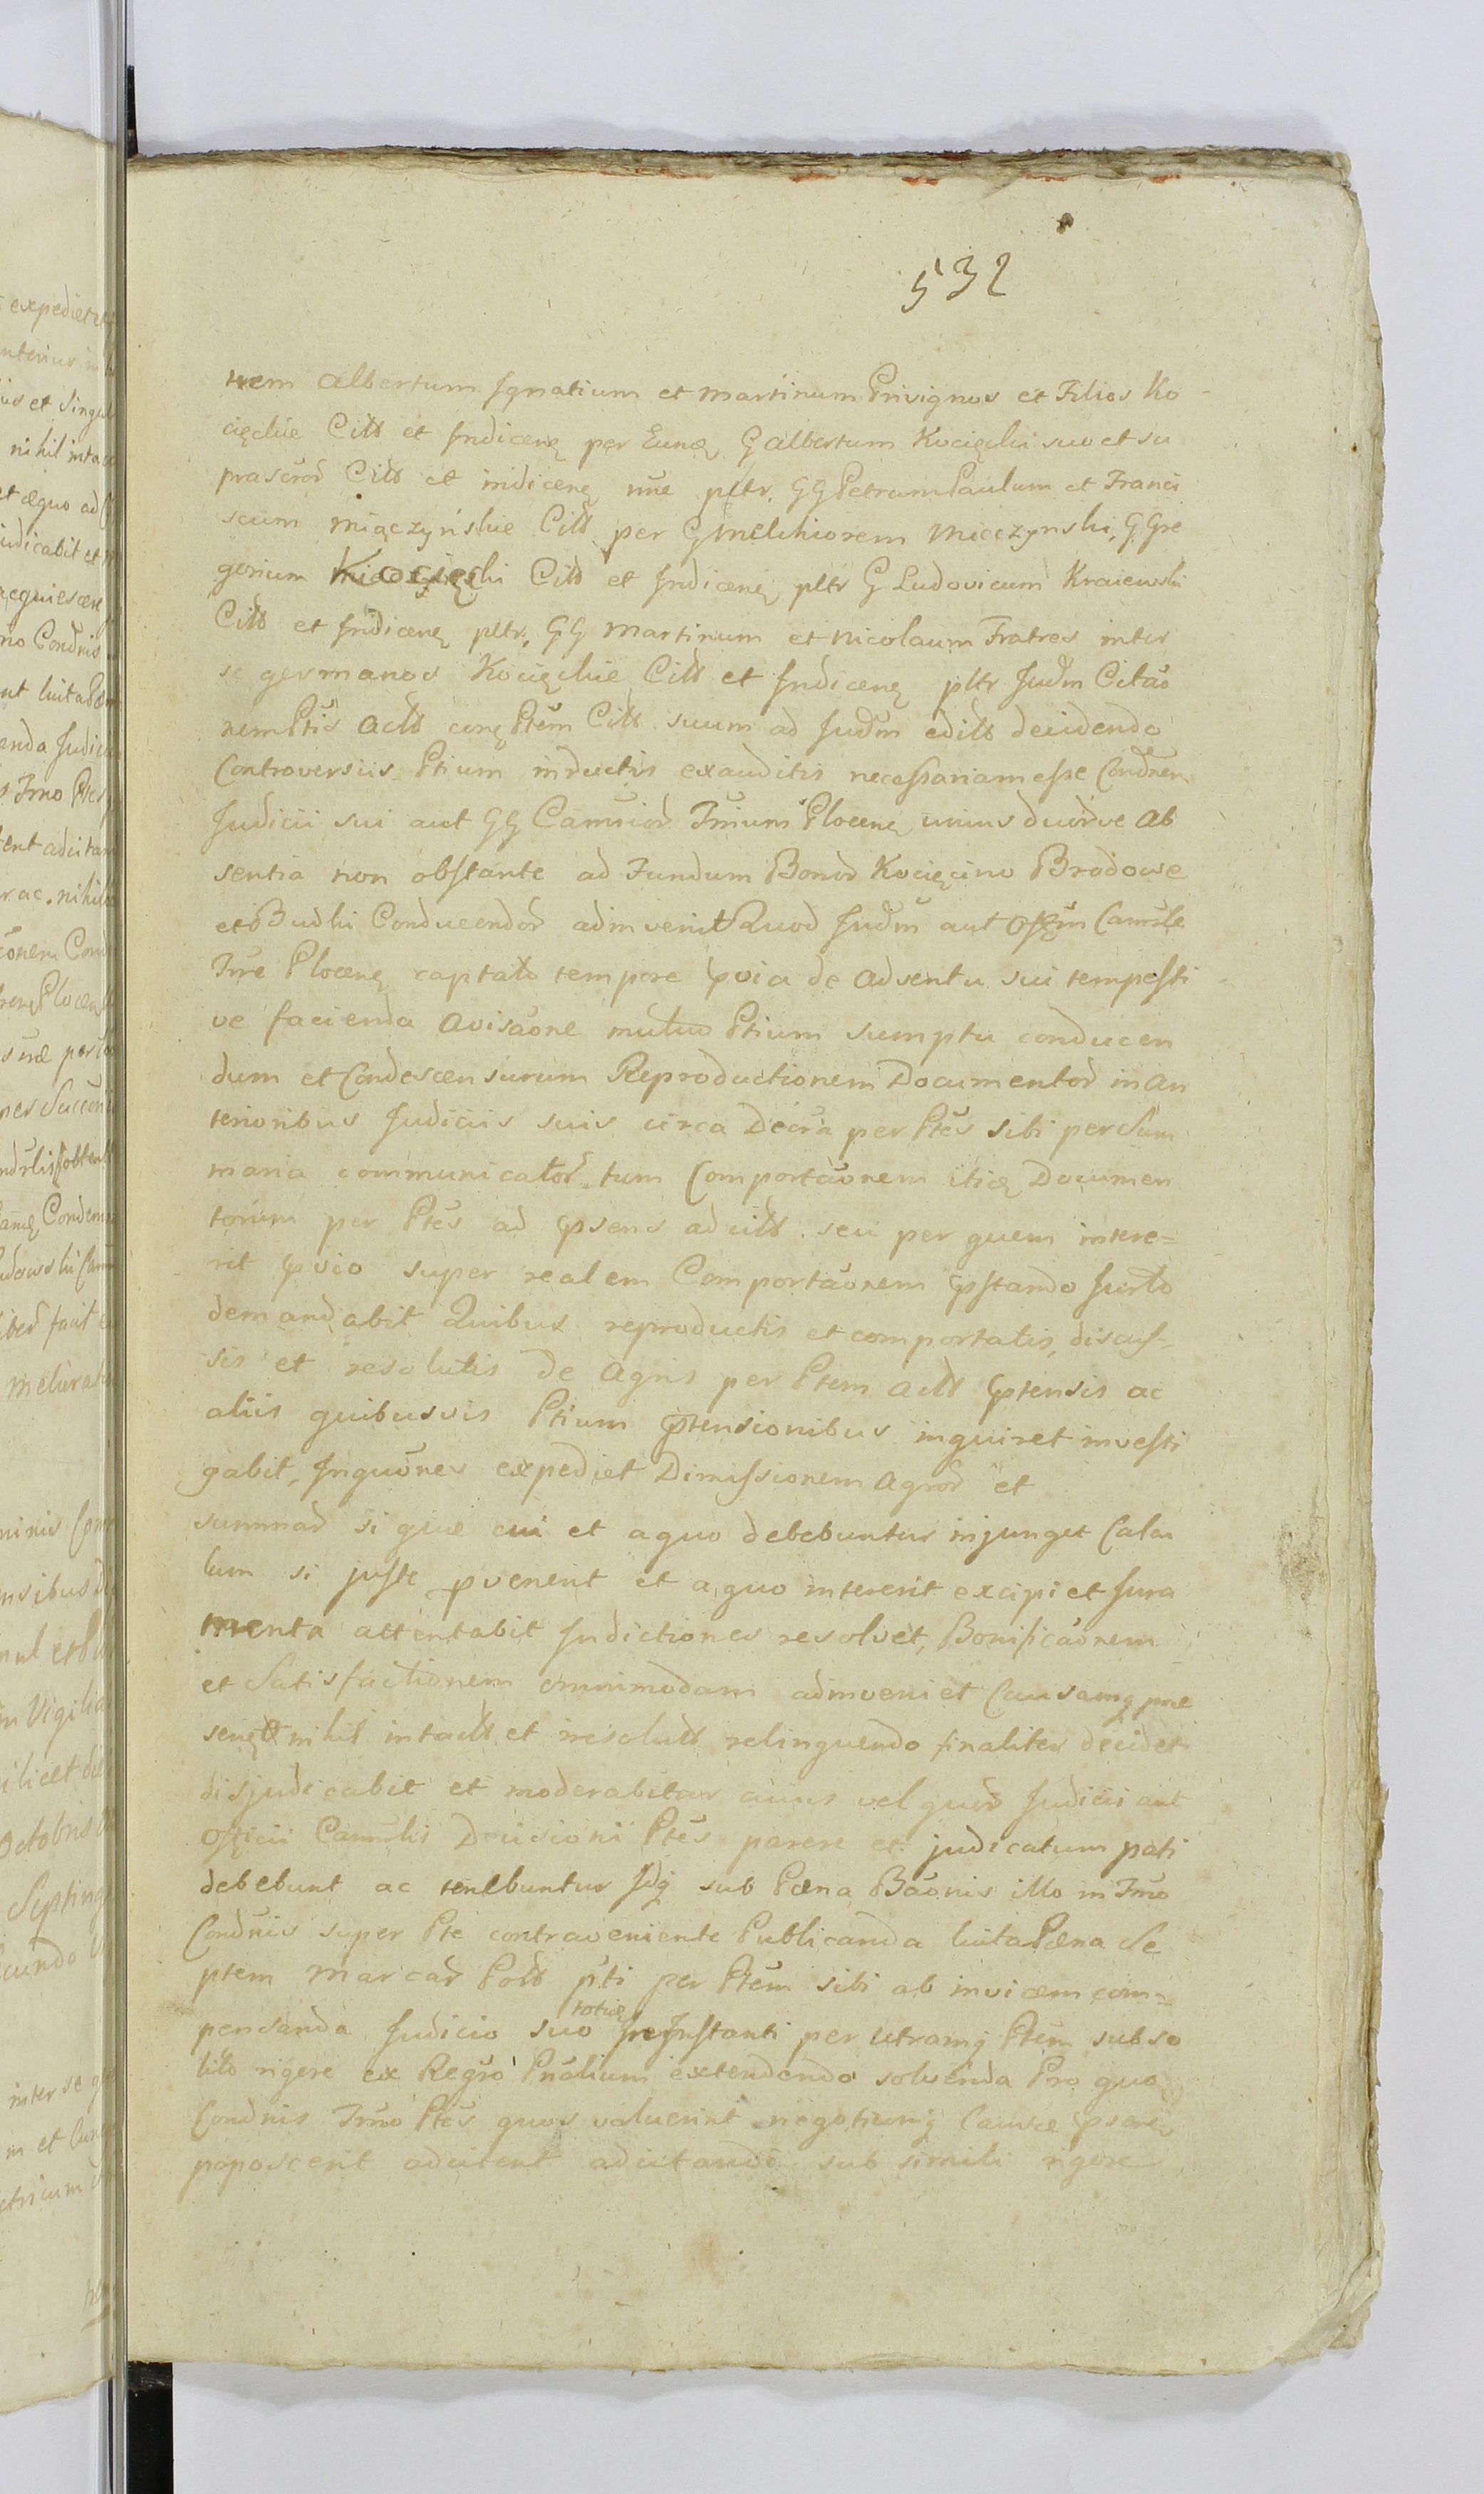 532
nem Albertum Ignatium et Martinum Privignos et Filios Ko-
cięckie Citt et Indicenę per Eunę G Albertum Kocięcki suo et su
prascror Citt et indicenę nne pltr. GG Petrum Paulum et Franci
scum Miączyńskie Citt per G Melchiorem Mieczynski, G Gre
gorium Kocięcki Citt et Indicenę pltr G Ludovicum Kraiewski
Citt et Indicenę pltr, GG Martinum et Nicolaum Fratres inter
se germanos Kocięckie Citt et Indicenę pltr Judm Citao
nem Ptis Actt conę Ptem Citt suum ad Judm editt decidendo
Controversiis Ptium inductis exauditis necessariam esse Condnen
Judicii sui aut GG Camrior Trium Plocenę unius duorve Ab
sentia non obstante ad Fundum Bonor Kocięcino Brodowe
et Budki Conducendor adinvenit Quod Judm aut Offm Camrle
Trre Plocenę captato tempore pvia de adventu sui tempesti
ve facienda Avisaone mutuo Ptium sumptu conducen
dum et Condescensurum Reproductionem Documentor in An
terioribus Judiciis suis circa Decra per Ptes sibi per Sum
maria communicator tum Comportaonem itię Documen
torum per Ptes ad psens adcitt seu per quem intere=
rit pvio super realem Comportaonem pstando Jurto
demandabit Quibus reproductis et comportatis, discus-
sis et resolutis de Agris per Ptem Actt ptensis ac
aliis quibusvis Ptium ptensionibus inquiret investi
gabit, Inquones expediet Dimissionem Agror et
summar si quæ cui et a quo debebuntur injunget Calcu
lum si juste pvenerit et a quo intererit excipiet Jura
menta attentabit Indictiones resolvet, Bonificaonem
et Satisfactionem omnimodam adinveniet Causamq præ
senę nihil intactt et irresolutt relinquendo finaliter decidet
disjudicabit et moderabitur cuius vel quor Judicii aut
Officii Camrlis Decisioni Ptes parere et judicatum pati
debebunt ac tenebuntur Idq sub Pæna Baonis illo in Trmo
Condnis super Pte contraveniente Publicanda luita Pæna Se
ptem Marcar Poltt pti per Ptem sibi ab invicem com=
pensanda Judicio suo totię Instanti per utramq Ptem sub so
lito rigore ex Regro Pnalium extendendo solvenda Pro quo
Condnis Trmo Ptes quos voluerint negotiumq Causæ psenę
poposcerit adcitent adcitandi sub simili rigore